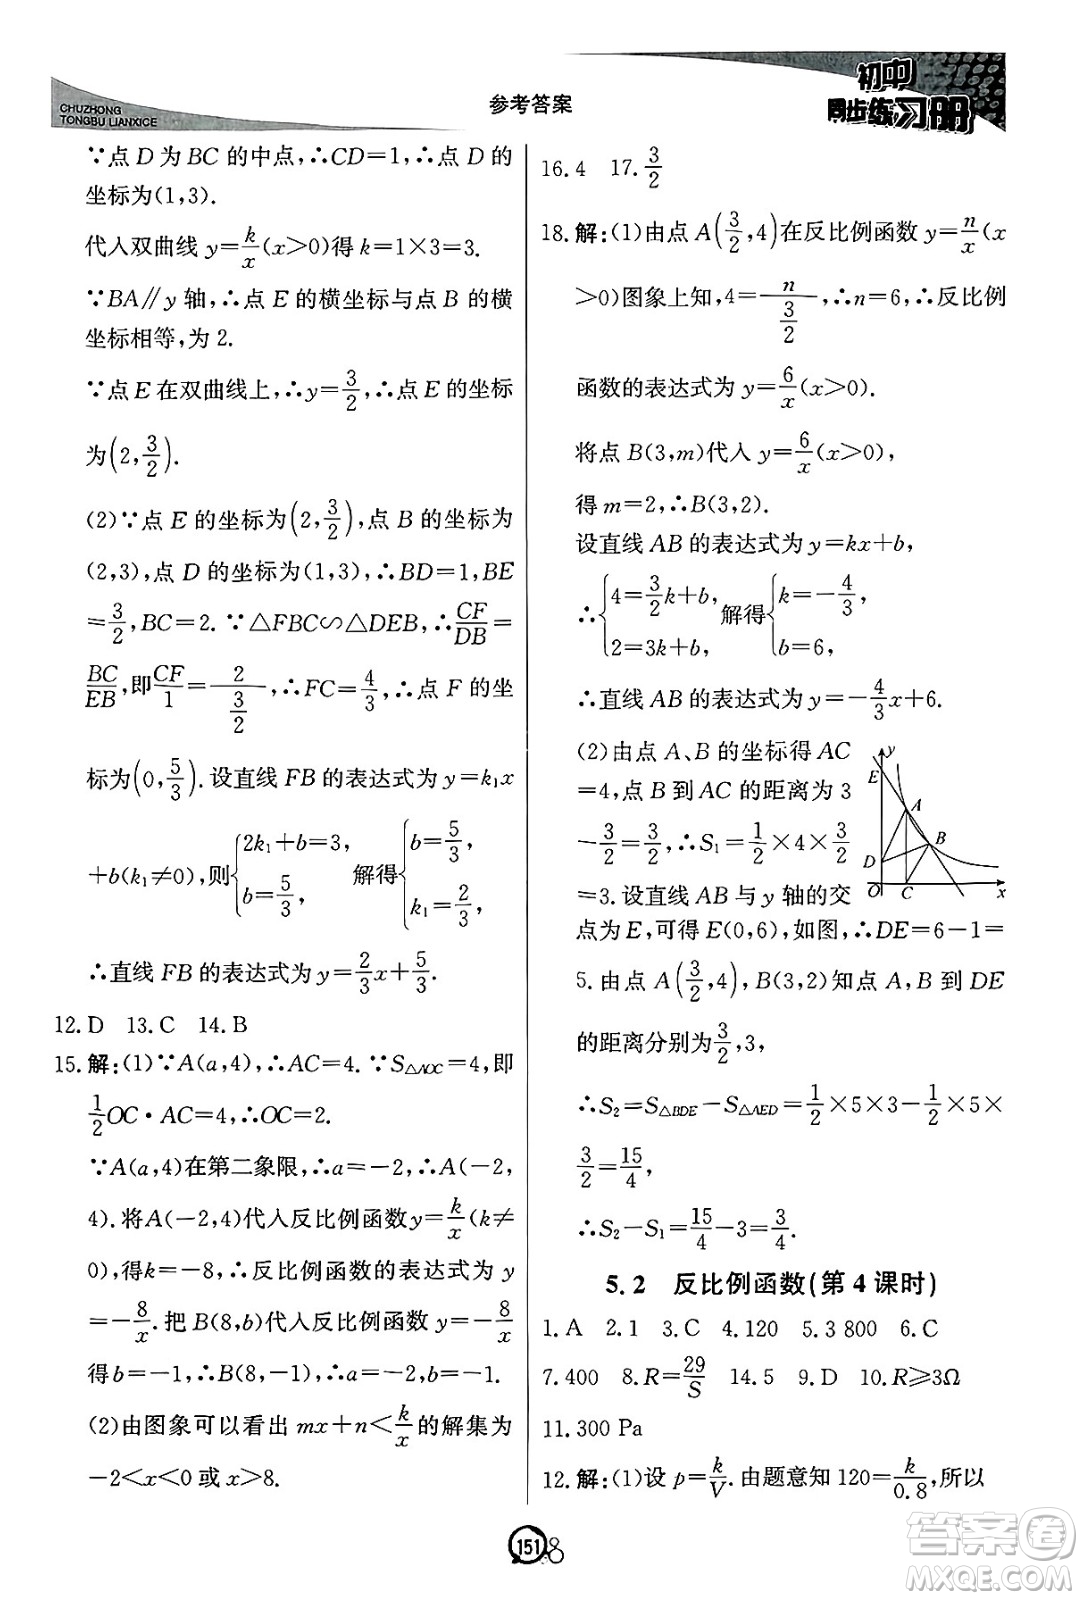 CHUZHONG
TONGBU LIANXICE
参考答案
初中
同步练习册
∵点 D 为 BC 的中点,∴CD=1,∴点 D 的
坐标为(1,3).
代入双曲线 y=k/x(x>0)得 k=1×3=3.
∵BA∥y 轴,∴点 E 的横坐标与点 B 的横
坐标相等,为 2.
∵点 E 在双曲线上,∴y=3/2,∴点 E 的坐标
为(2,3/2).
(2)∵点 E 的坐标为(2,3/2),点 B 的坐标为
(2,3),点 D 的坐标为(1,3),∴BD=1,BE
=3/2,BC=2. ∵△FBC∽△DEB,∴CF/DB=
BC/EB,即CF/1=2/(3/2),∴FC=4/3,∴点 F 的坐
标为(0,5/3). 设直线 FB 的表达式为 y=k₁x
+b(k₁≠0),则{2k₁+b=3, b=5/3, 解得{b=5/3, k₁=2/3,
∴直线 FB 的表达式为 y=2/3x+5/3.
12.D 13.C 14.B
15.解:(1)∵A(a,4),∴AC=4. ∵S△AOC=4,即
1/2OC·AC=4,∴OC=2.
∵A(a,4)在第二象限,∴a=-2,∴A(-2,
4). 将A(-2,4)代入反比例函数y=k/x(k≠
0),得k=-8,∴反比例函数的表达式为 y
=-8/x. 把 B(8,b)代入反比例函数 y=-8/x
得 b=-1,∴B(8,-1),∴b=-1.
(2)由图象可以看出 mx+n<k/x的解集为
-2<x<0 或 x>8.
16.4 17.3/2
18.解:(1)由点 A(3/2,4)在反比例函数 y=n/x(x
>0)图象上知,4=n/(3/2),∴n=6,∴反比例
函数的表达式为 y=6/x(x>0).
将点 B(3,m)代入 y=6/x(x>0),
得 m=2,∴B(3,2).
设直线 AB 的表达式为 y=kx+b,
∴{4=3/2k+b, 2=3k+b, 解得{k=-4/3, b=6,
∴直线 AB 的表达式为 y=-4/3x+6.
(2)由点 A、B 的坐标得 AC
=4,点 B 到 AC 的距离为 3
-3/2=3/2,∴S₁=1/2×4×3/2
=3. 设直线 AB 与 y 轴的交
点为 E,可得 E(0,6),如图,∴DE=6-1=
5. 由点 A(3/2,4),B(3,2)知点 A,B 到 DE
的距离分别为3/2,3,
∴S₂=S△BDE-S△AED=1/2×5×3-1/2×5×
3/2=15/4,
∴S₂-S₁=15/4-3=3/4.
y
E
A
B
D
O
C
x
5.2 反比例函数(第 4 课时)
1.A 2.1 3.C 4.120 5.3 800 6.C
7.400 8.R=29/S 14.5 9.D 10.R≥3Ω
11.300 Pa
12.解:(1)设 p=k/V. 由题意知 120=k/0.8,所以
151
8
答案圈
MXQE.COM